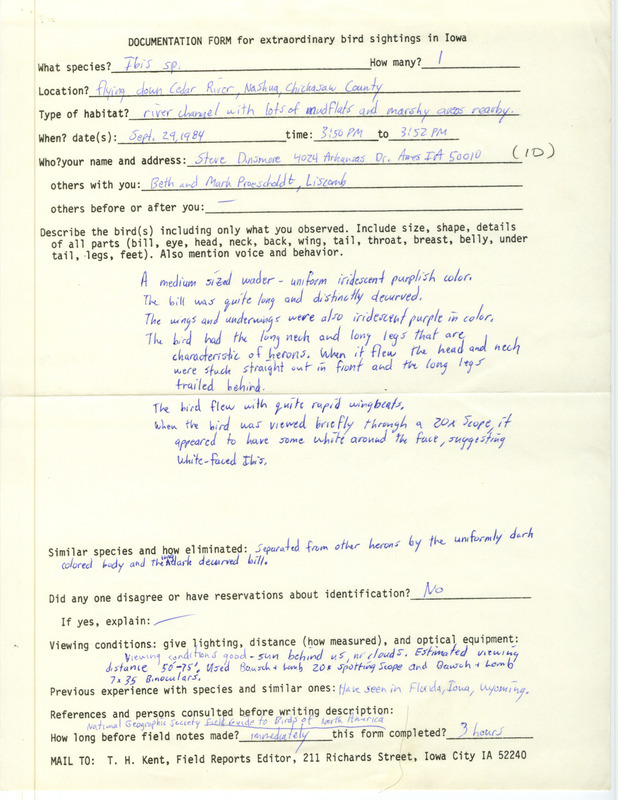 DOCUMENTATION FORM for extraordinary bird sightings in Iowa
What species? Ibis sp. How many? 1
Location? flying down Cedar River, Nashua, Chickasaw County
Type of habitat? river channel with lots of mudflats and marshy areas nearby.
When? date(s): Sept. 29, 1984 time: 3:50 PM to 3:52 PM
Who?your name and address: Steve Dinsmore 4024 Arkansas Dr. Ames IA 50010 (10)
others with you: Beth and Mark Proescholdt, Liscomb
others before or after you: —
Describe the bird(s) including only what you observed. Include size, shape, details
of all parts (bill, eye, head, neck, back, wing, tail, throat, breast, belly, under
tail, legs, feet). Also mention voice and behavior.
A medium sized wader - uniform iridescent purplish color.
The bill was quite long and distinctly decurved.
The wings and underwings were also iridescent purple in color.
The bird had the long neck and long legs that are
characteristic of herons. When it flew the head and neck
were stuck straight out in front and the long legs
trailed behind.
The bird flew with quite rapid wingbeats.
When the bird was viewed briefly through a 20x scope, it
appeared to have some white around the face, suggesting
White-faced Ibis.
Similar species and how eliminated: Separated from other herons by the uniformly dark
colored body and the long dark decurved bill.
Did any one disagree or have reservations about identification? No
If yes, explain: —
Viewing conditions: give lighting, distance (how measured), and optical equipment:
Viewing conditions good - sun behind us, no clouds. Estimated viewing
distance 50'-75'. Used Bausch + Lomb 20x spotting scope and Bausch + Lomb
7x35 Binoculars.
Previous experience with species and similar ones: Have seen in Florida, Iowa, Wyoming.
References and persons consulted before writing description:
National Geographic Society Field Guide to Birds of North America
How long before field notes made? immediately this form completed? 3 hours
MAIL TO: T. H. Kent, Field Reports Editor, 211 Richards Street, Iowa City IA 52240